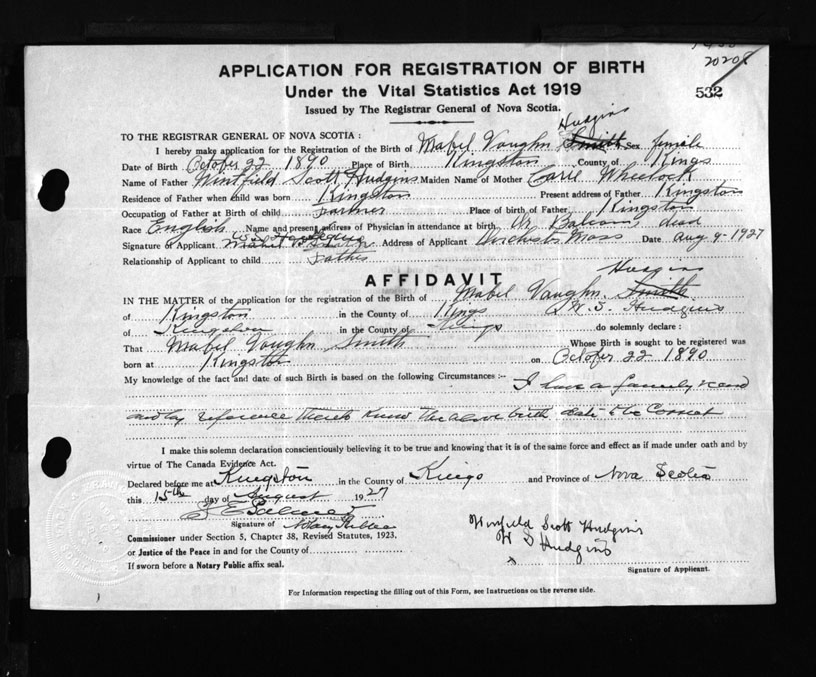 20208
532
APPLICATION FOR REGISTRATION OF BIRTH
Under the Vital Statistics Act 1919
Issued by The Registrar General of Nova Scotia.
Hudgins
TO THE REGISTRAR GENERAL OF NOVA SCOTIA :
I hereby make application for the Registration of the Birth of Mabel Vaughn Smith Sex female
Date of Birth October 22 1890 Place of Birth Kingston County of Kings
Name of Father Winfield Scott Hudgins Maiden Name of Mother Carrie Wheelock
Residence of Father when child was born Kingston Present address of Father Kingston
Occupation of Father at Birth of child farmer Place of birth of Father Kingston
Race English Name and present address of Physician in attendance at birth, dead
Signature of Applicant Address of Applicant Dorchester Mass Date Aug 9 - 1927
Relationship of Applicant to child Father
AFFIDAVIT
Hudgins
IN THE MATTER of the application for the registration of the Birth of Mabel Vaughn Smith
of Kingston in the County of Kings I W. S. Hudgins
of Kingston in the County of Kings do solemnly declare :
That Mabel Vaughn Smith Whose Birth is sought to be registered was
born at Kingston on October 22 1890
My knowledge of the fact and date of such Birth is based on the following Circumstances :- I have a family record
and by reference thereto know the above birth date to be correct
I make this solemn declaration conscientiously believing it to be true and knowing that it is of the same force and effect as if made under oath and by
virtue of The Canada Evidence Act.
Declared before me at Kingston in the County of Kings and Province of Nova Scotia
this 15th day of August 1927
Signature of Notary Public
Winfield Scott Hudgins
Commissioner under Section 5, Chapter 38, Revised Statutes, 1923.
W S Hudgins
or Justice of the Peace in and for the County of
If sworn before a Notary Public affix seal.
Signature of Applicant.
For Information respecting the filling out of this Form, see Instructions on the reverse side.